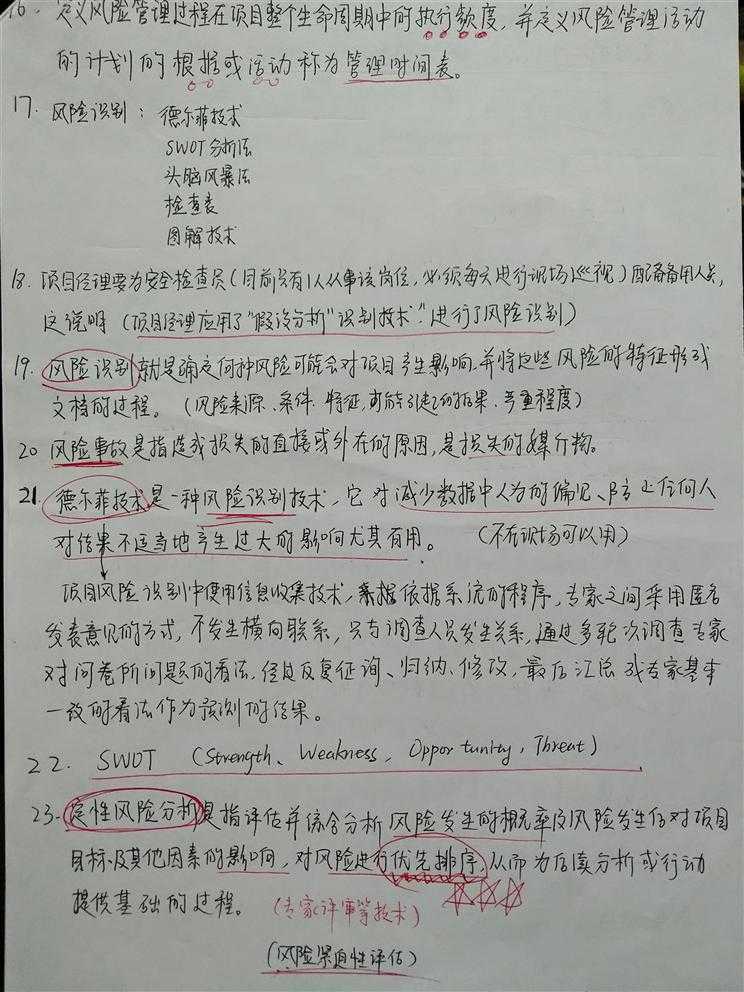 16. 定义风险管理过程在项目整个生命周期中的执行频度, 并定义风险管理活动
的计划的根据或活动称为管理时间表。
17. 风险识别: 德尔菲技术
SWOT分析法
头脑风暴法
检查表
图解技术
18. 项目经理要为安全检查员(目前只有1人从事该岗位, 必须每天进行现场巡视)配备备用人员,
这说明 (项目经理应用了"假设分析"识别技术"进行了风险识别)
19. 风险识别就是确定何种风险可能会对项目产生影响, 并将这些风险的特征形成
文档的过程。 (风险来源、条件、特征, 可能引起的结果、严重程度)
20 风险事故是指造成损失的直接或外在的原因, 是损失的媒介物。
21. 德尔菲技术是一种风险识别技术, 它对减少数据中人为的偏见、防止任何人
对结果不适当地产生过大的影响尤其有用。 (不在现场可以用)
项目风险识别中使用信息收集技术, 依据系统的程序, 专家之间采用匿名
发表意见的方式, 不发生横向联系, 只与调查人员发生关系, 通过多轮次调查专家
对问卷所问题的看法, 经过反复征询、归纳、修改, 最后汇总成专家基本
一致的看法作为预测的结果。
22. SWOT (Strength、Weakness、Opportunity, Threat)
23. 定性风险分析是指评估并综合分析风险发生的概率及风险发生后对项目
目标及其他因素的影响, 对风险进行优先排序, 从而为后续分析或行动
提供基础的过程。 (专家评审等技术)
(风险紧迫性评估)